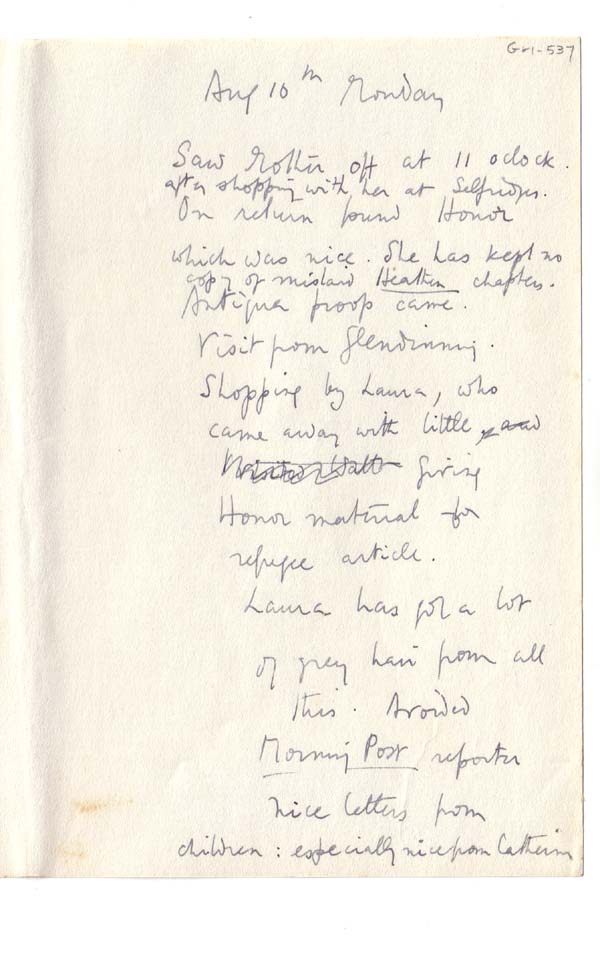 Gr1-537
Aug 10th Monday
Saw Mother off at 11 oclock.
after shopping with her at Selfridges.
On return found Honor
which was nice. She has kept no
copy of mislaid Heathen chapters.
Antigua proofs came.
Visit from Glendinning.
Shopping by Laura, who
came away with little, and
Visited Watt Giving
Honor material for
refugee article.
Laura has got a lot
of grey hair from all
this. Avoided
Morning Post reporter
Nice letters from
children: especially nice from Catherine